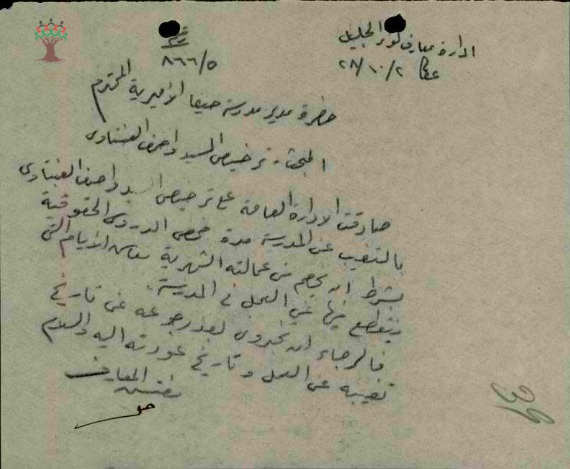 ادارة معارف لواء الجليل
عكا ٢/١٠/٢٨
رقم
٥/٨٦٦
حضرة مدير مدرسة حيفا الأميرية المحترم
المبحث - ترخيص السيد واصف
صادقت الادارة العامة على ترخيص السيد واصف
بالتغيب عن المدرسة مدة فحص الدروس الحقوقية
بشرط ان يحسم من عمالته الشهرية معاش الأيام التي
ينقطع فيها عن العمل في المدرسة.
فالرجاء ان تخبروني بعد رجوعه عن تاريخ
تغيبه عن العمل وتاريخ عودته اليه والسلام
مفتش المعارف